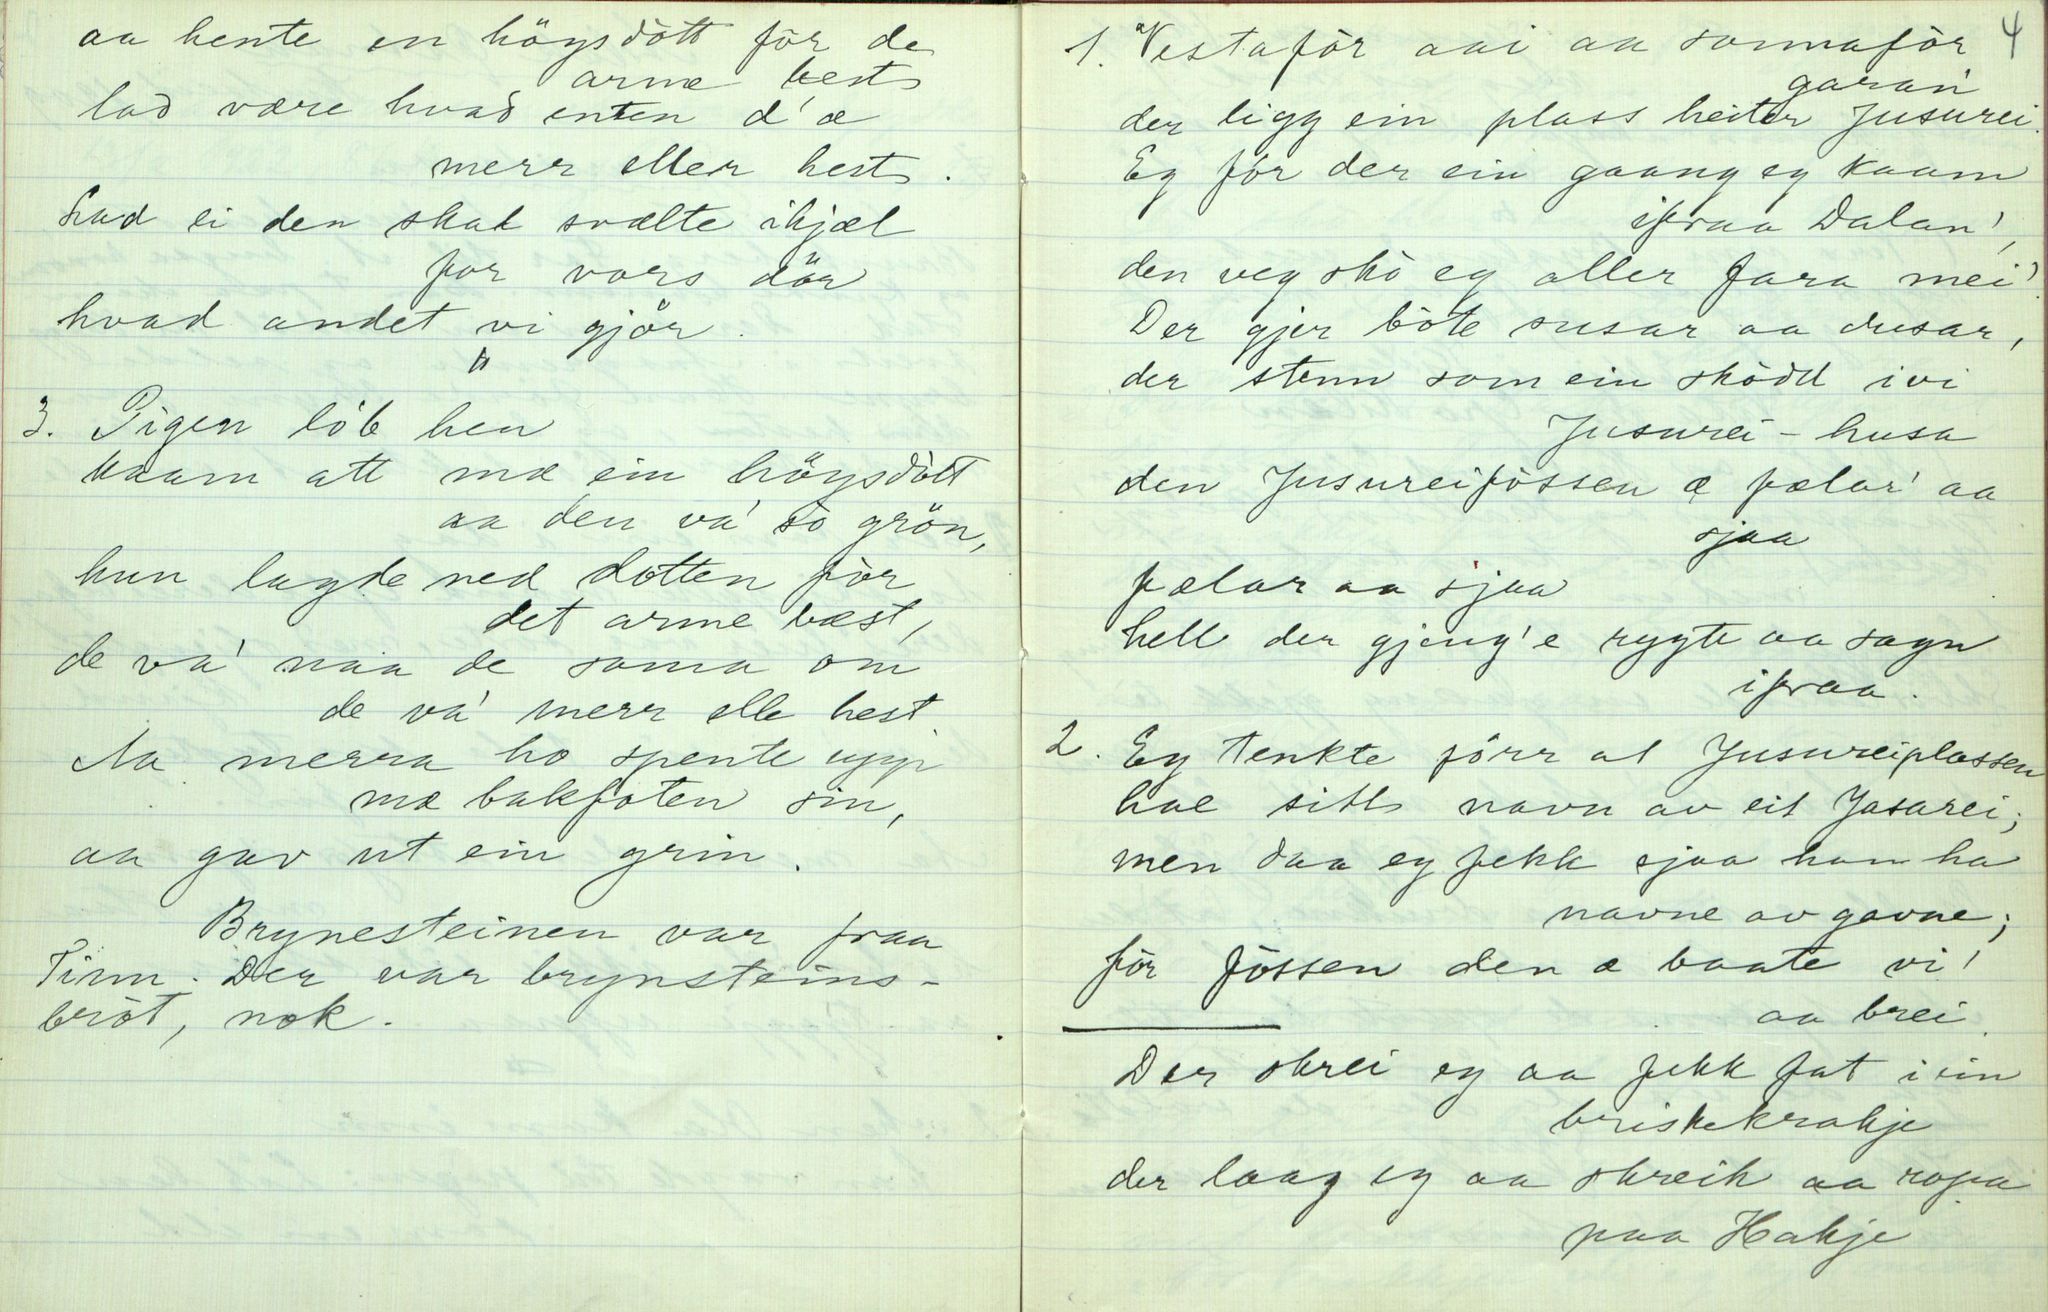 aa hente en höysdòtt fòr de
arme best
lad være hvad enten d'æ
merr eller hest.
Lad ei den skal svælte ihjæl
for vors dör
hvad andet vi gjör.
"
3. Pigen lób hen
kaam att mæ ein höysdòtt
aa den va' so grön,
hun lagde ned dotten fòr
det arme bæst,
de va' naa de sama om
de va' merr elle hest
Aa merra ho spente upp
mæ bakfoten sin,
aa gav ut ein grin.
Brynesteinen var fraa
Tinn. Der var brynsteins-
bròt, nok.
4
1. Vestafòr aai aa sonnafòr
garan'
der ligg ein plass heiter Jusurei.
Eg fòr der ein gaang eg kaam
ifraa Dalan',
den veg skò eg aller fara mei'.
Der gjer bòte susar aa dusar,
der stenn som ein skòdd ivi
Jusurei-husa
den Jusureifòssen æ fælar' aa
sjaa
fælar aa sjaa
hell der gjeng'e rygte aa sagn
ifraa.
2. Eg tenkte fòrr at Jusureiplassen
hae sitt navn av eit Jasarei;
men daa eg fekk sjaa han ha
navne av gavne;
fòr fòssen den æ baate vi'
aa brei.
Der skrei eg aa fekk fat i ein
briskekrakje
der laag eg aa skreik aa ropa
paa Hakje